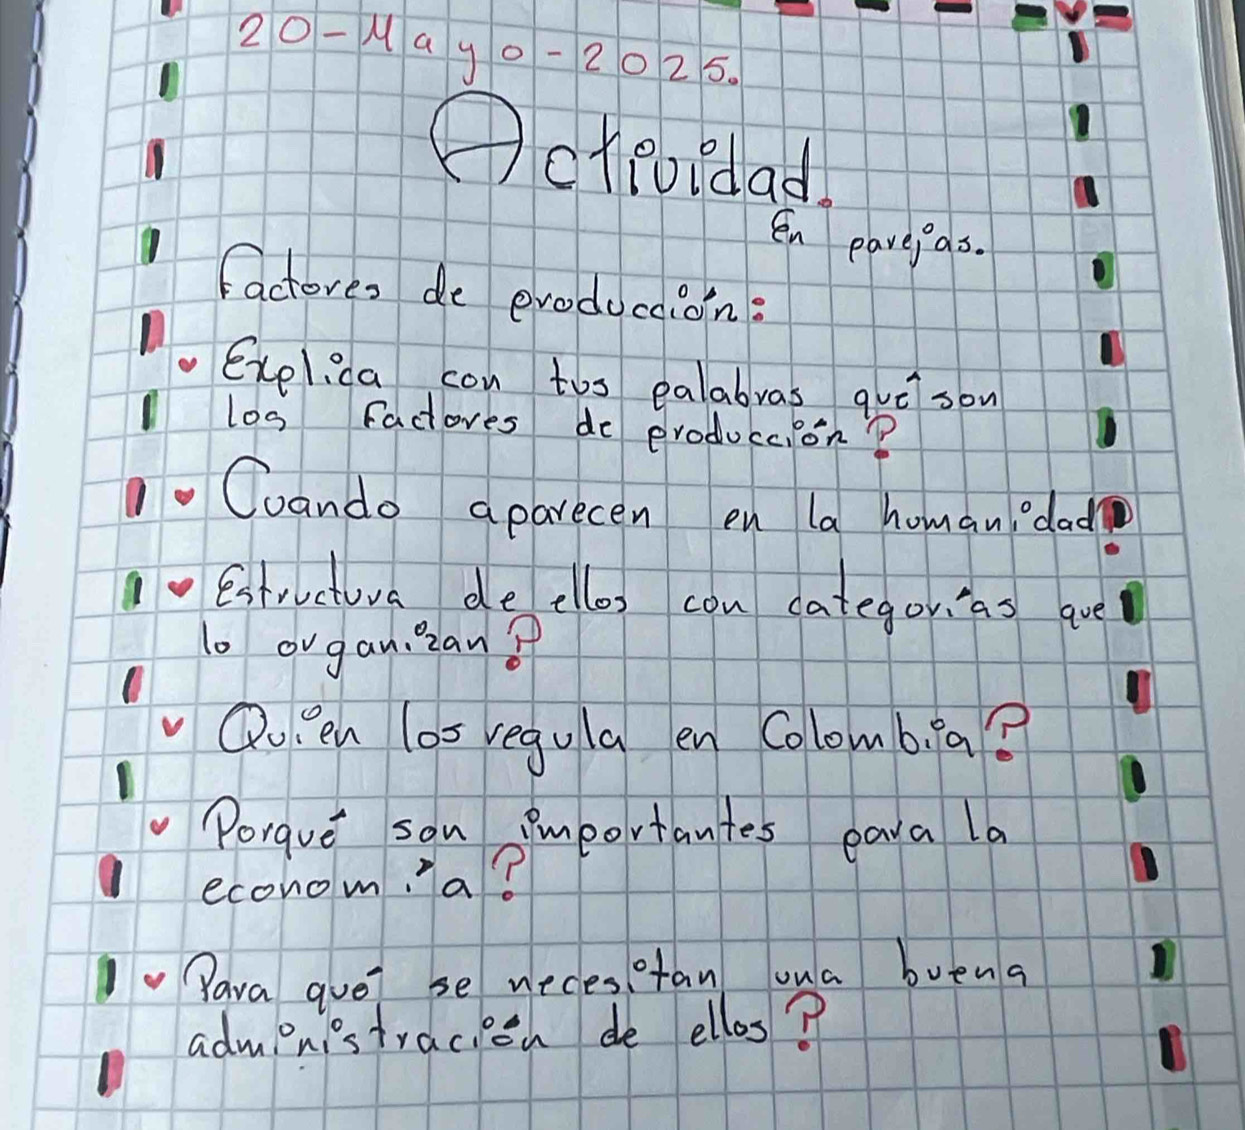 20-Mayo-2025.
Actividad.
En parejas.
Factores de producción:
Explica con tus palabras qué son
los Factores de producción?
Cuando aparecen en la humanidad?
Estructura de ellos con categorías que
lo organizan?
Quien los regula en Colombia?
Porqué son importantes para la
economía?
Para qué se necesitan una buena
administración de ellos?